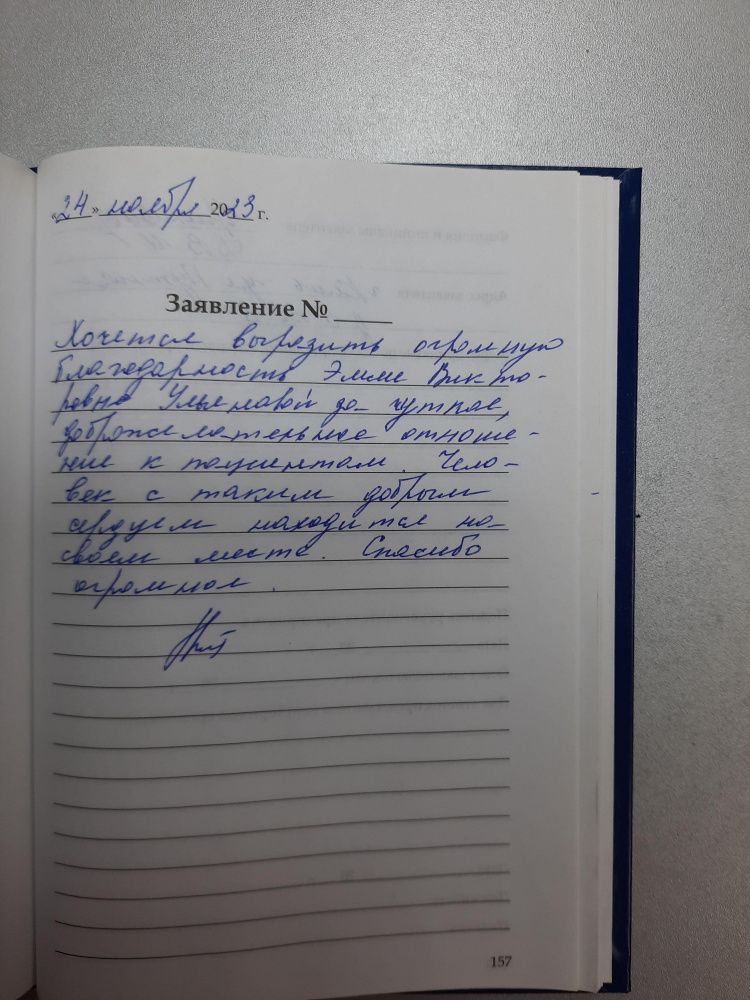 «24» ноября 2023 г.
Заявление № ____
Хочется выразить огромную
благодарность Эмме Викто-
ровне Ульяновой за чуткое,
доброжелательное отноше-
ние к пациентам. Чело-
век с таким добрым
сердцем находится на
своем месте. Спасибо
огромное.
157